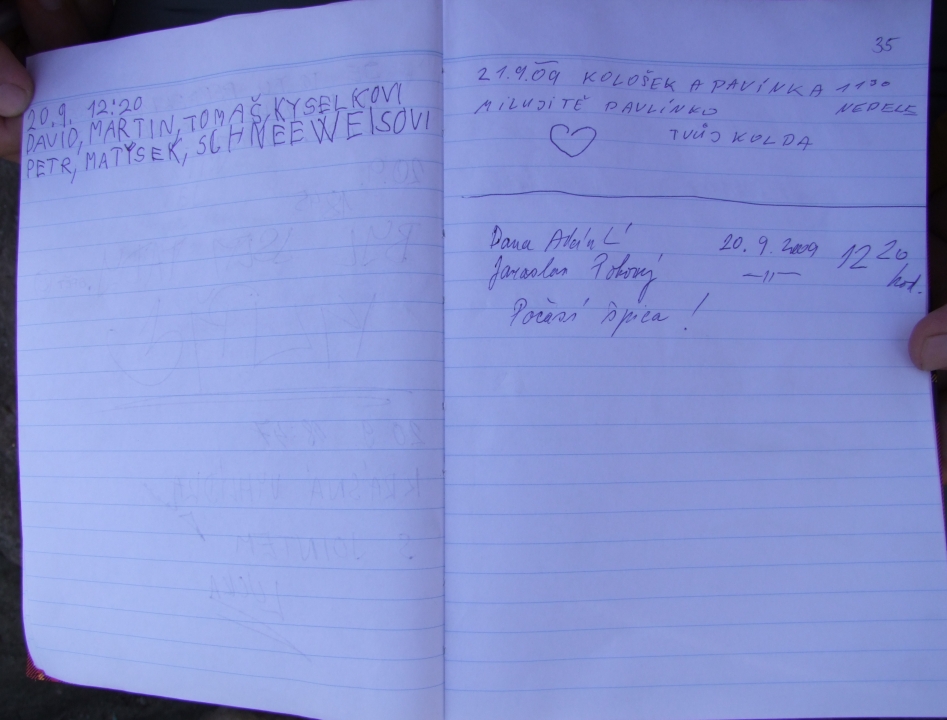 20.9. 12:20
DAVID, MARTIN, TOMAŠ, KYSELKOVI
PETR, MATÝSEK, SCHNEEWEISOVI
35
21.9.09 KOLOŠEK A PAVÍNKA 11 30
MILUJI TĚ PAVLÍNKO NEDELE
TVŮJ KOLDA
Dana 20. 9. 2009 12 20
Jaroslav Pokorný —II— hod.
Počasí špica!